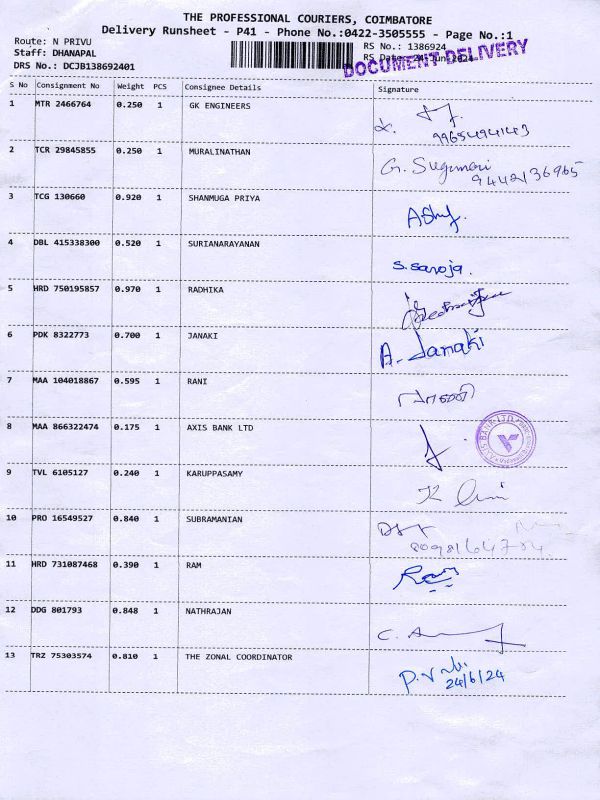 THE PROFESSIONAL COURIERS, COIMBATORE
Delivery Runsheet - P41 - Phone No.:0422-3505555 - Page No.:1
Route: N PRIVU
Staff: DHANAPAL
DRS No.: DCJB138692401
RS No.: 1386924
RS Date: 24-Jun-2024
DOCUMENT DELIVERY
S No Consignment No Weight PCS Consignee Details Signature
1 MTR 2466764 0.250 1 GK ENGINEERS
9965494143
2 TCR 29845855 0.250 1 MURALINATHAN G. Sugunari
9442136965
3 TCG 130660 0.920 1 SHANMUGA PRIYA
4 DBL 415338300 0.520 1 SURIANARAYANAN S. Saroja.
5 HRD 750195857 0.970 1 RADHIKA
6 PDK 8322773 0.700 1 JANAKI A. Janaki
7 MAA 104018867 0.595 1 RANI
8 MAA 866322474 0.175 1 AXIS BANK LTD
AXIS BANK LTD.
9 TVL 6105127 0.240 1 KARUPPASAMY
10 PRO 16549527 0.840 1 SUBRAMANIAN
11 HRD 731087468 0.390 1 RAM Ram
12 DDG 801793 0.848 1 NATHRAJAN
13 TRZ 75303574 0.810 1 THE ZONAL COORDINATOR
24/6/24